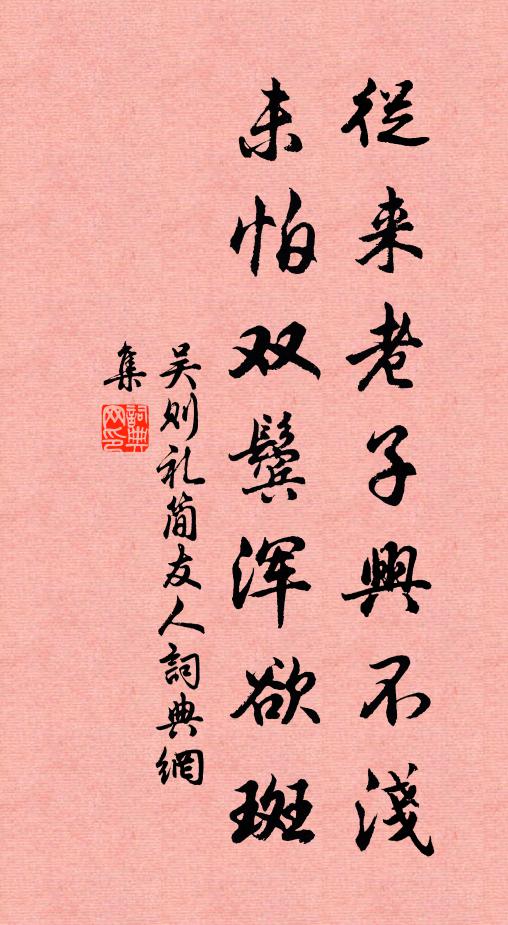 從来老子興不淺
未怕双鬓浑欲斑
吴则礼简友人詞典網
集
詞典网印